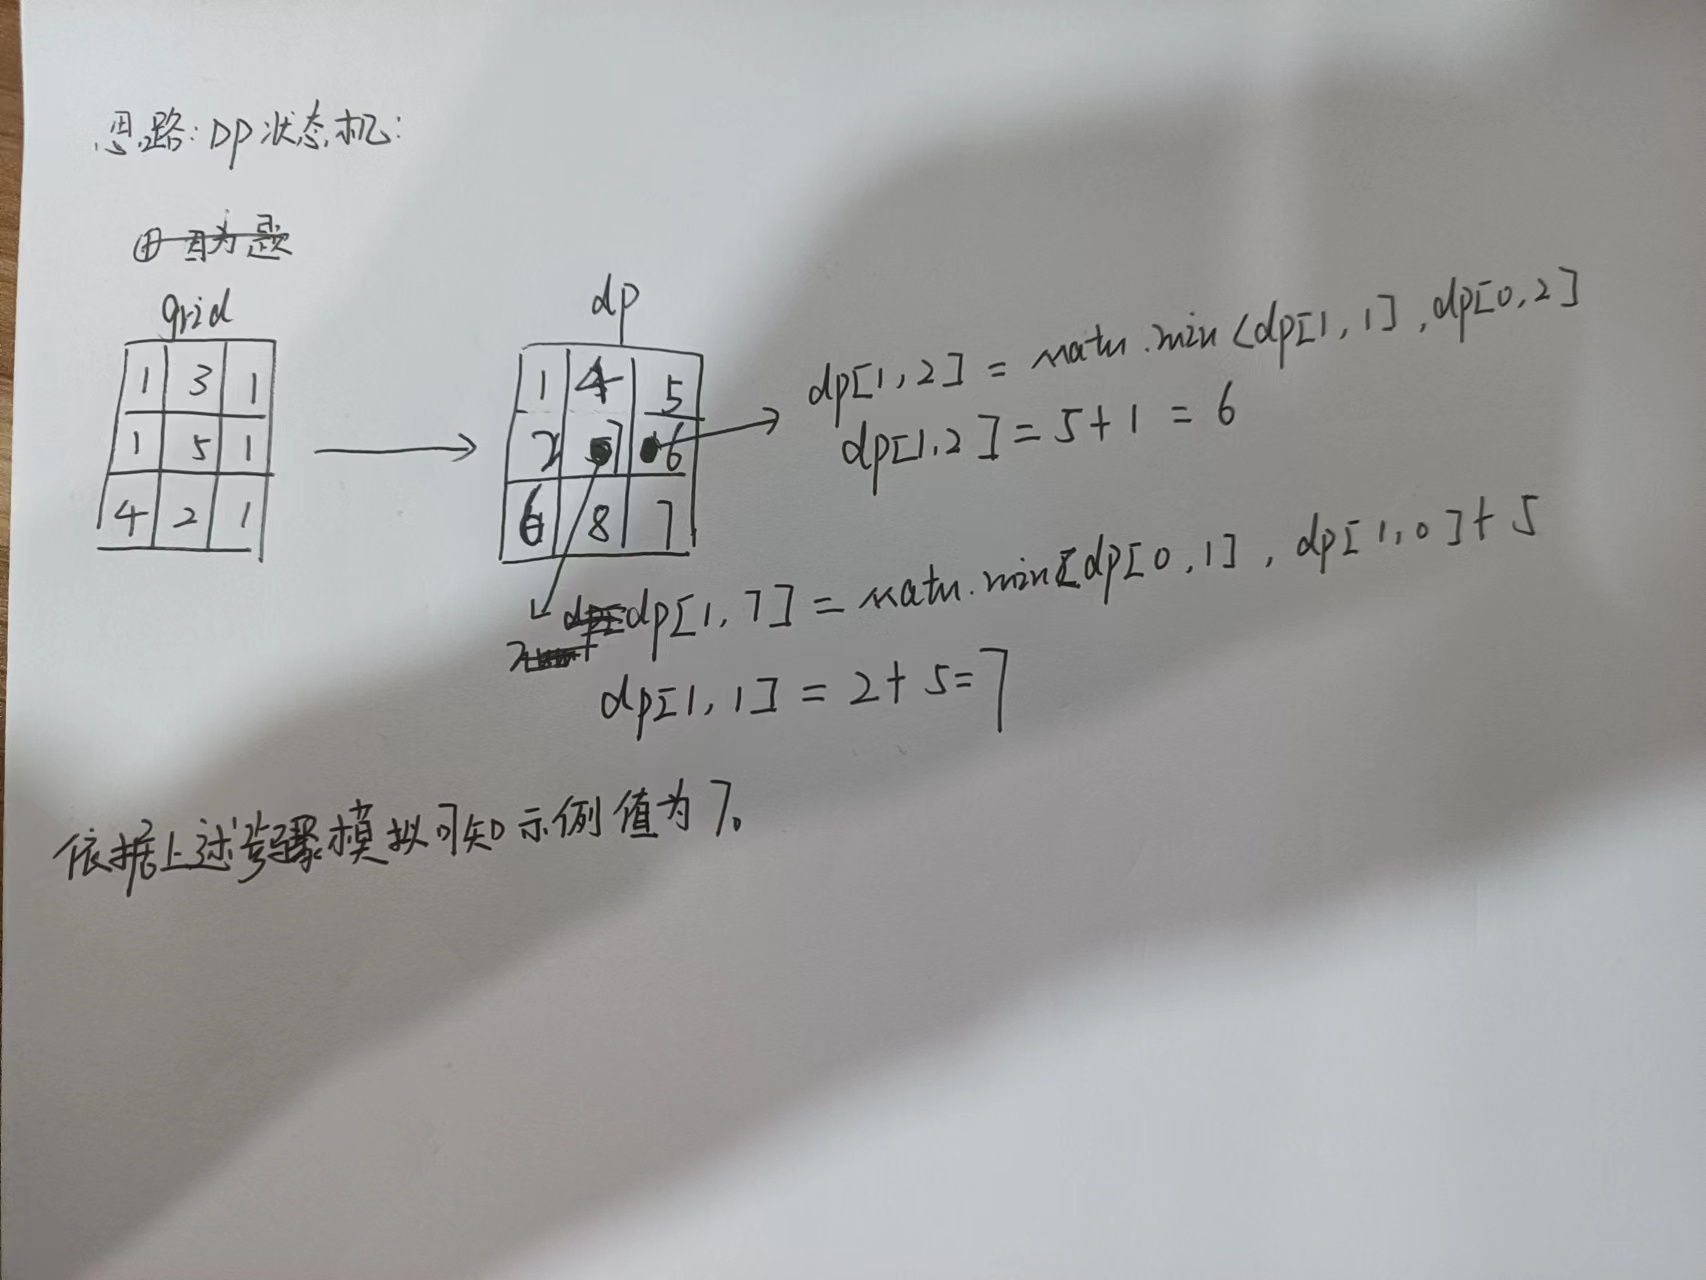 思路: DP状态机:
因为题
grid
1 3 1
1 5 1
4 2 1
dp
1 4 5
2 7 6
6 8 7
dp[1,2] = math.min(dp[1,1],dp[0,2]
dp[1,2] = 5+1 = 6
dp[1,7] = math.min[dp[0,1], dp[1,0]+5
dp[1,1] = 2+5=7
依据上述步骤模拟可知示例值为7。